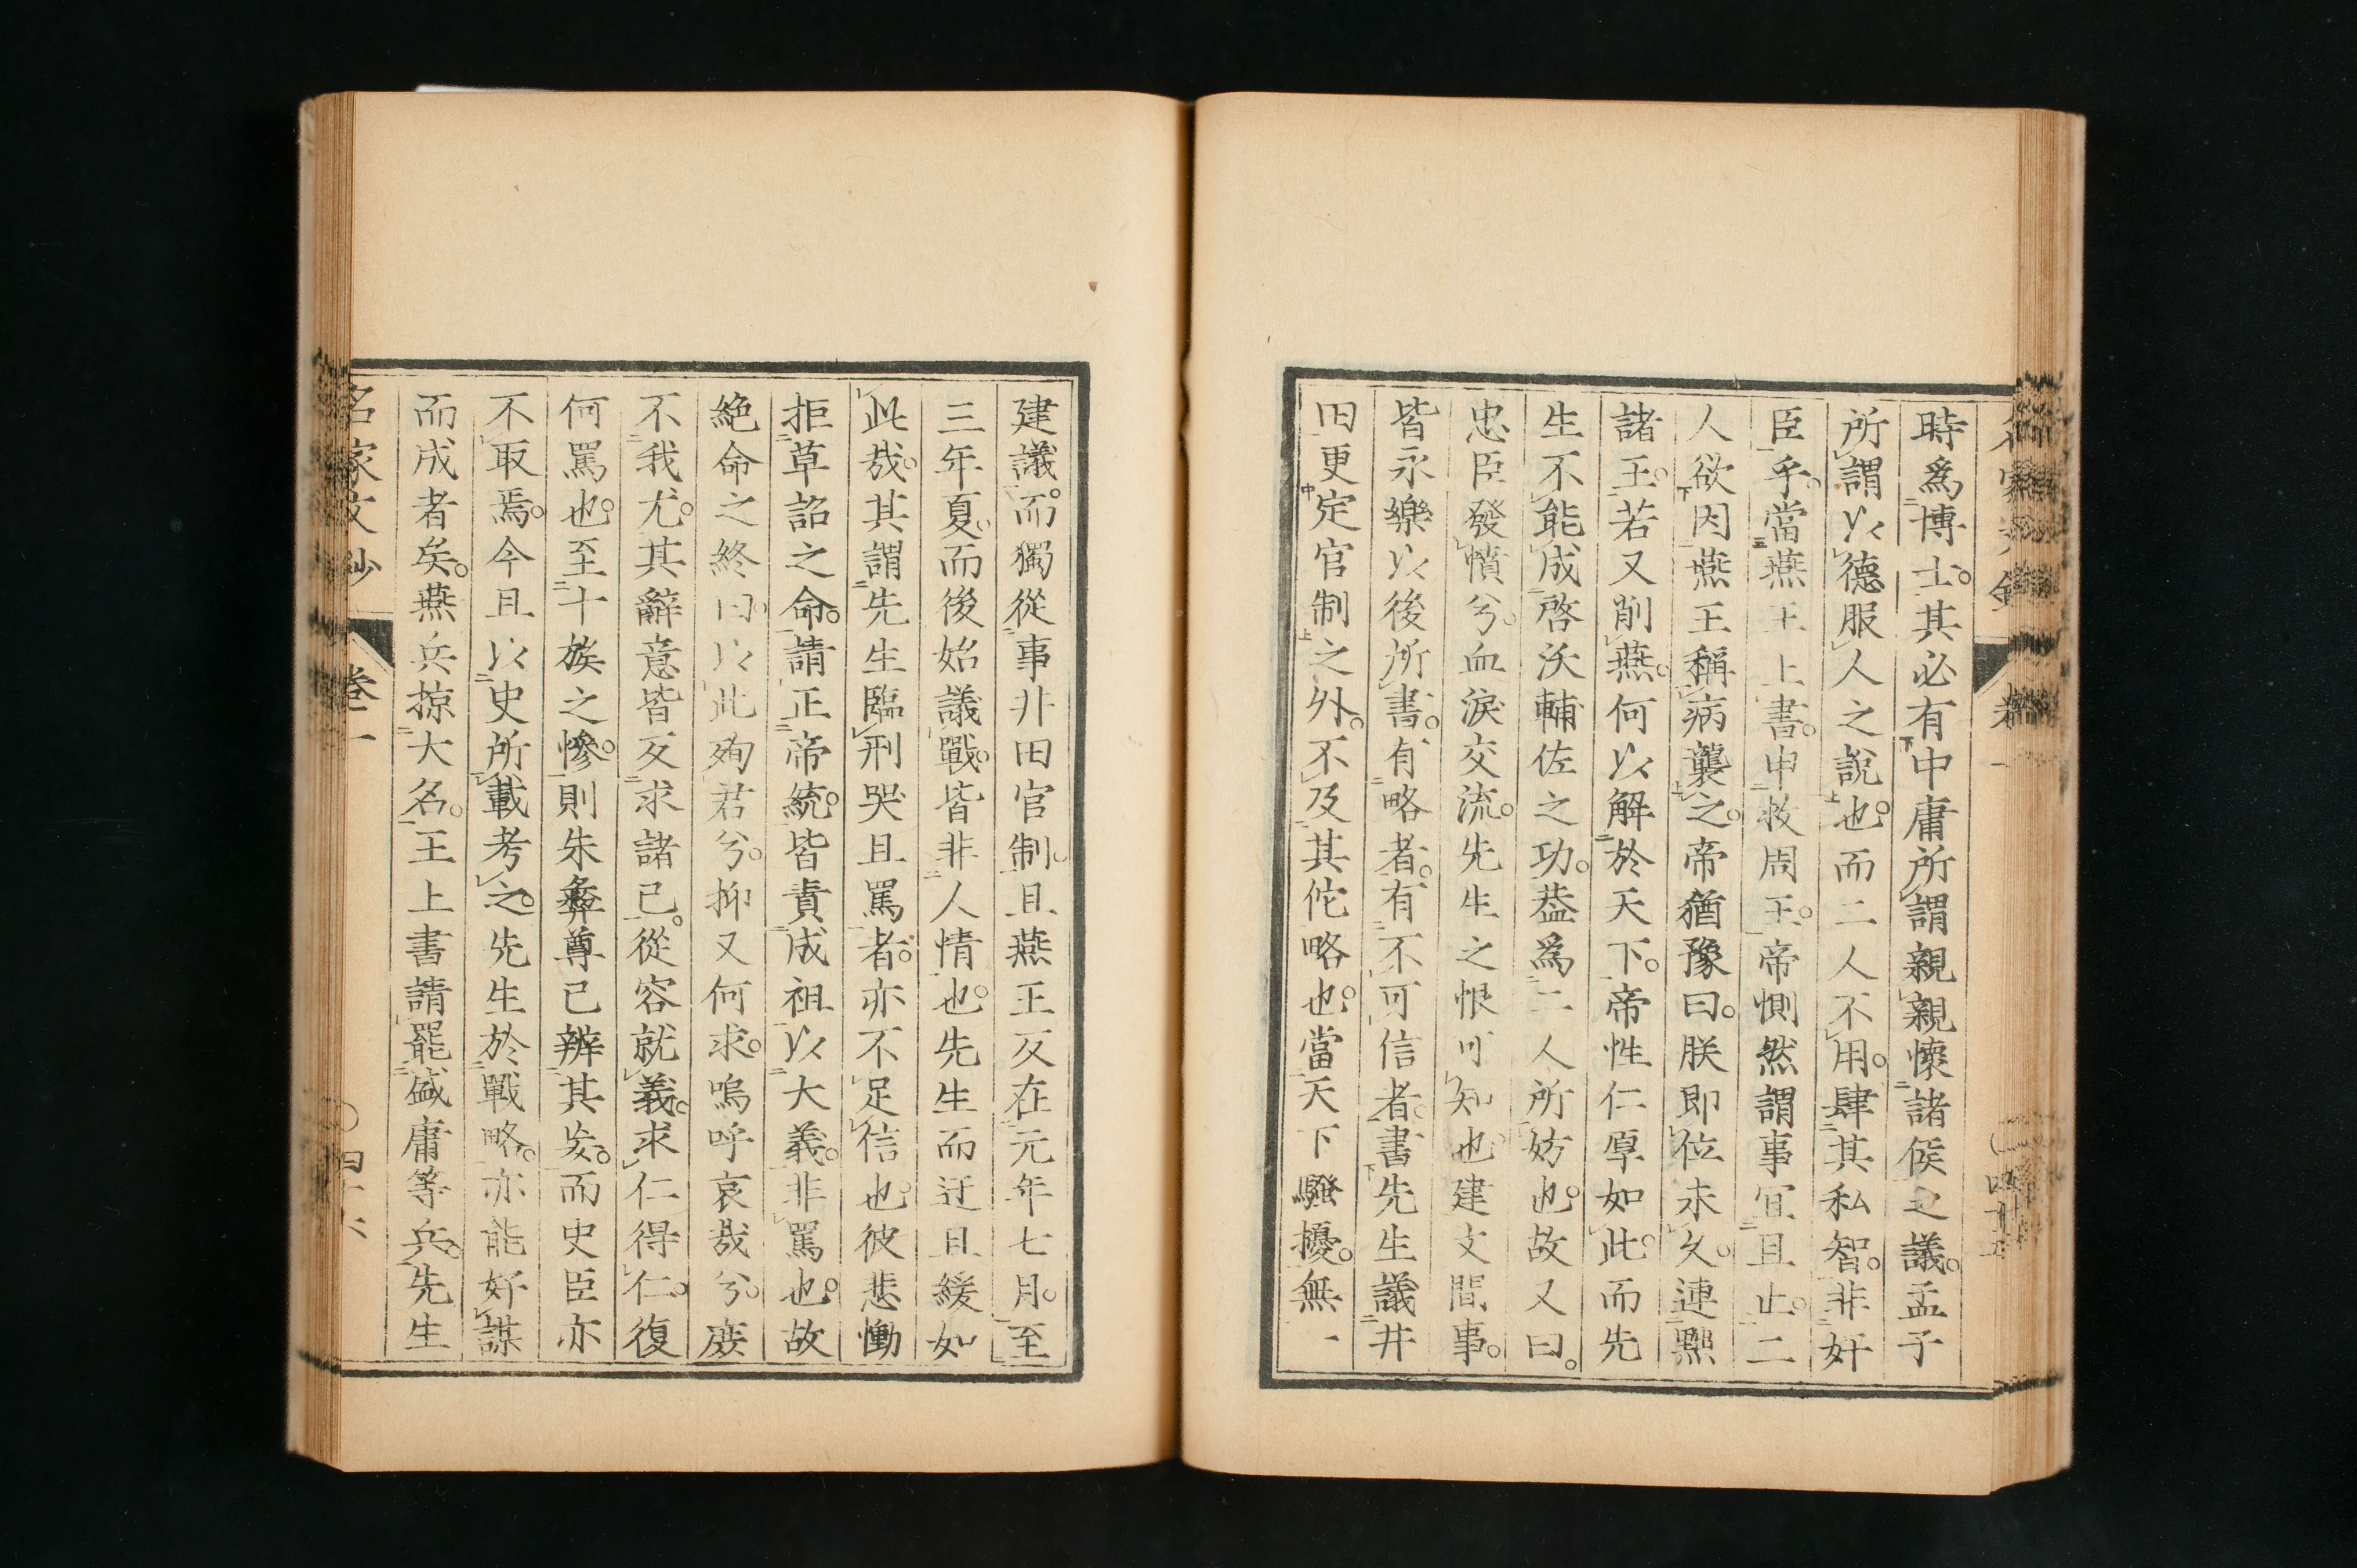 時爲博士。其必有中庸所謂親親懷諸侯之議。孟子
所謂以德服人之說也。而二人不用。肆其私智。非奸
臣乎。當燕王上書。申救周王。帝惻然謂事宜且止。二
人欲因燕王稱病襲之。帝猶豫曰。朕即位未久。連黜
諸王。若又削燕。何以解於天下。帝性仁厚如此。而先
生不能成啓沃輔佐之功。葢爲二人所妨也。故又曰。
忠臣發憤兮。血淚交流。先生之恨可知也。建文間事。
皆永樂以後所書。有略者。有不可信者。書先生議井
田更定官制之外。不及其佗略也。當天下騷擾。無一
建議。而獨從事井田官制。且燕王反在元年七月。至
三年夏。而後始議戰。皆非人情也。先生而迂且緩如
此哉。其謂先生臨刑哭且罵者。亦不足信也。彼悲慟
拒草詔之命。請正帝統。皆責成祖以大義。非罵也。故
絶命之終曰。以此殉君兮。抑又何求。嗚呼哀哉兮。庶
不我尤。其辭意皆反求諸己。從容就義。求仁得仁。復
何罵也。至十族之慘。則朱彝尊已辨其妄。而史臣亦
不取焉。今且以史所載考之。先生於戰略。亦能好謀
而成者矣。燕兵掠大名。王上書請罷盛庸等兵。先生
名家文抄 卷一